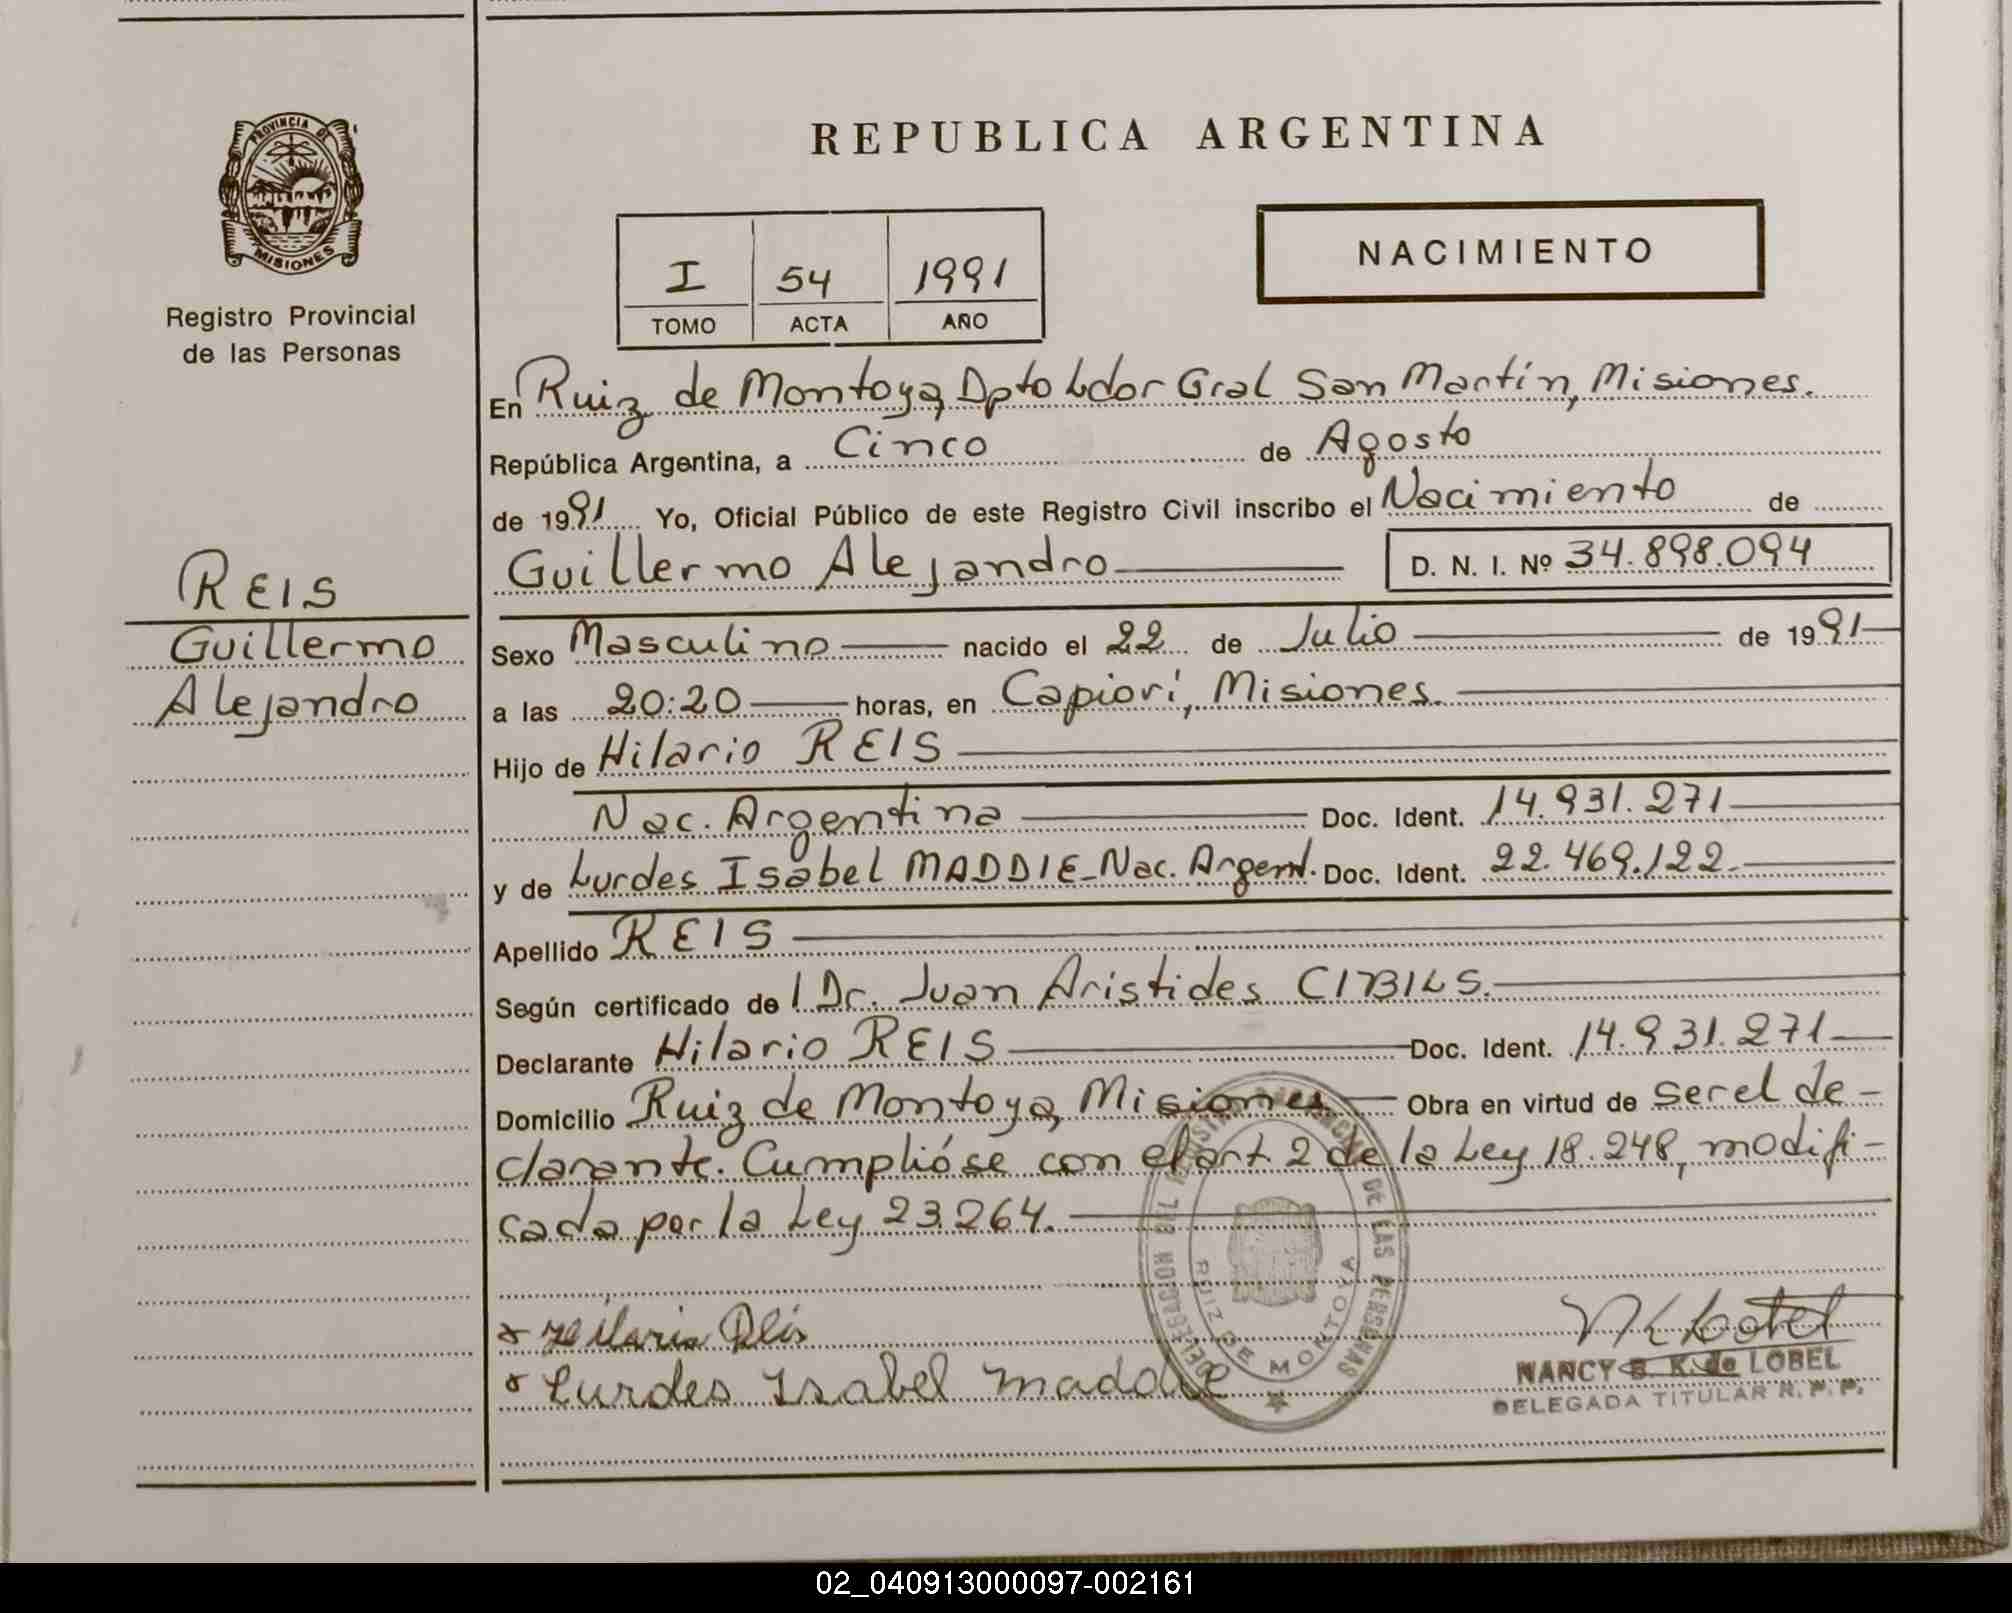 PROVINCIA DE
MISIONES
Registro Provincial
de las Personas
REPUBLICA ARGENTINA
I 54 1991
TOMO ACTA AÑO
NACIMIENTO
En Ruiz de Montoya, Dpto Ldor Gral San Martín, Misiones.
República Argentina, a Cinco de Agosto
de 1991 Yo, Oficial Público de este Registro Civil inscribo el Nacimiento de
Guillermo Alejandro D. N. I. Nº 34.898.094
REIS
Guillermo
Alejandro
Sexo Masculino nacido el 22 de Julio de 1991
a las 20:20 horas, en Capiovi, Misiones.
Hijo de Hilario REIS
Nac. Argentina Doc. Ident. 14.931.271
y de Lurdes Isabel MADDIE_Nac. Argent. Doc. Ident. 22.469.122.
Apellido REIS
Según certificado de l Dr. Juan Aristides CIBILS.
Declarante Hilario REIS Doc. Ident. 14.931.271
Domicilio Ruiz de Montoya, Misiones Obra en virtud de ser el de-
clarante. Cumplióse con el art. 2 de la Ley 18.248, modifi-
cada por la Ley 23.264.
Hilario Reis
Lurdes Isabel Maddie
DE LAS PERSONAS
RUIZ DE MONTOYA
NANCY B. K. de LOBEL
DELEGADA TITULAR R. P. P.
02_040913000097-002161